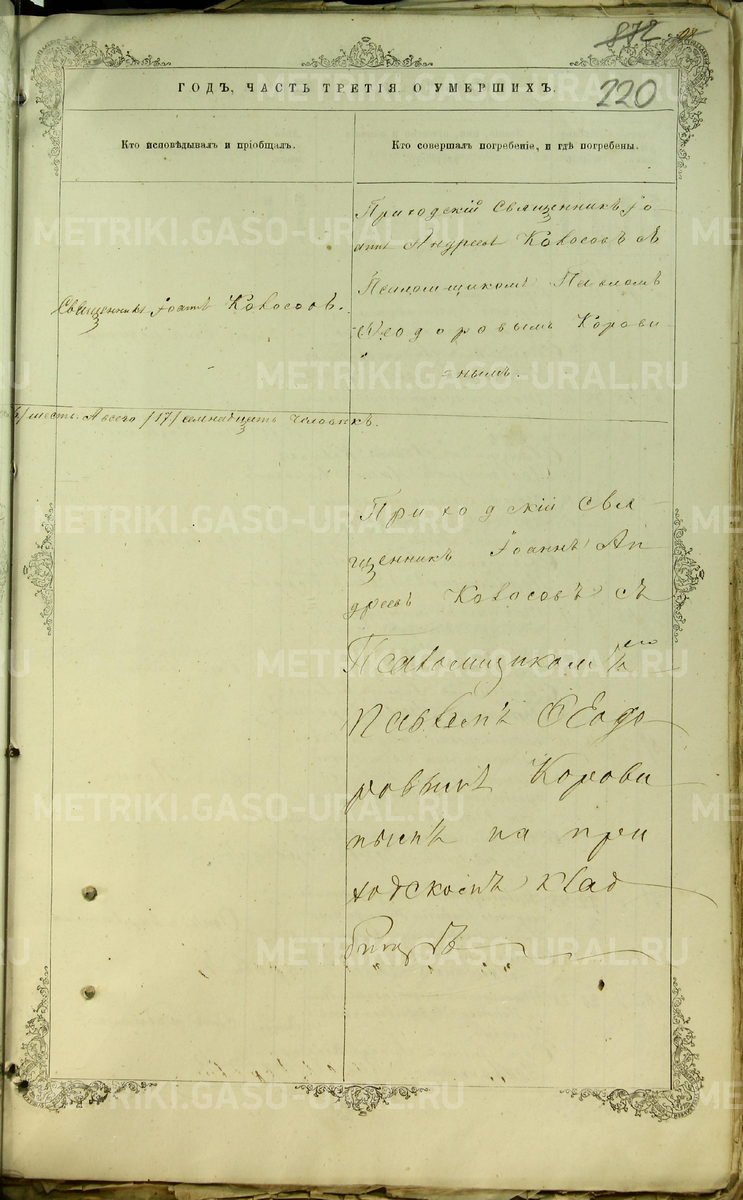 872
220
ГОДЪ, ЧАСТЬ ТРЕТІЯ, О УМЕРШИХЪ.
Кто исповѣдывалъ и пріобщалъ.
Кто совершалъ погребеніе, и гдѣ погребены.
Приходскій Священникъ Іо
аннъ Андреевъ Колосовъ съ
Псаломщикомъ Павломъ
Ѳеодоровымъ Корови
нымъ.
Священникъ Іоаннъ Колосовъ.
шесть. А всего /17/ семнадцать человѣкъ.
Приходскій Свя
щенникъ Іоаннъ Ан
дреевъ Колосовъ съ
Псаломщикомъ
Павломъ Ѳеодо
ровымъ Корови
нымъ на при
ходскомъ клад
бищѣ
METRIKI.GASO-URAL.RU